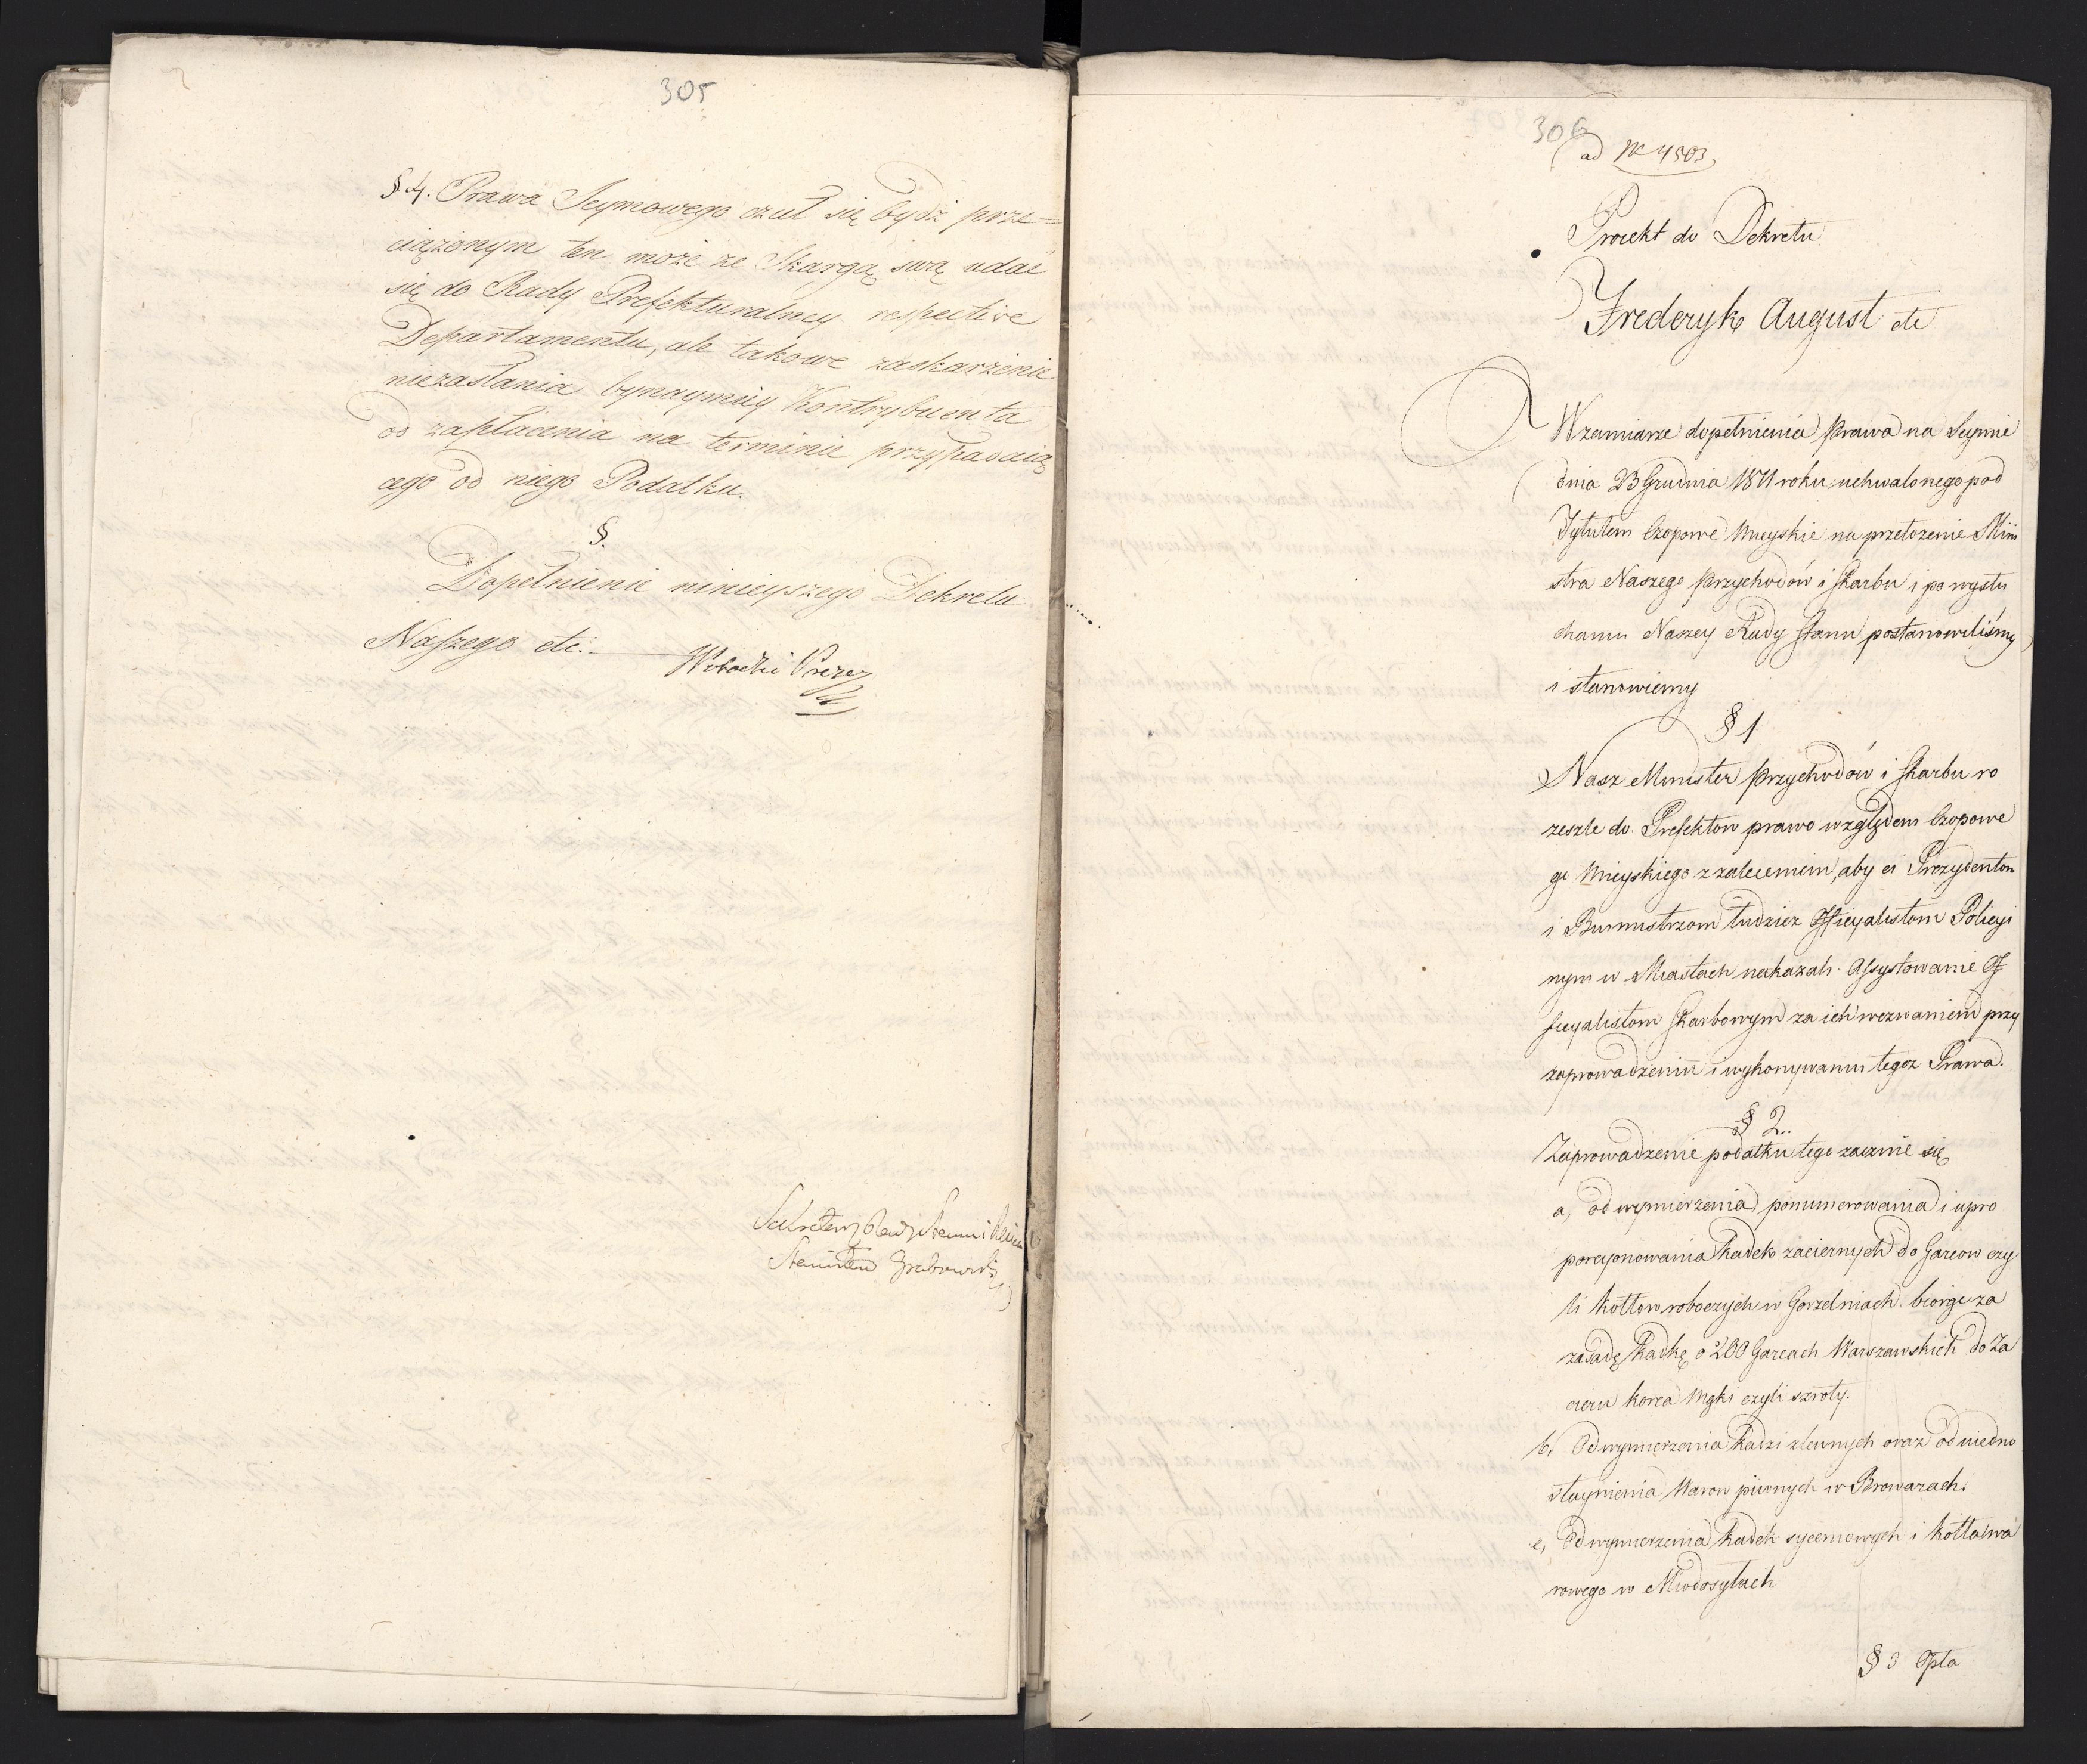 305
§ 4. Prawa Seymowego czuł się bydź prze-
ciążonym ten może ze Skargą swą udać
się do Rady Prefekturalney respective
Departamentu, ale takowe zaskarżenie
niezasłania bynaymniey Kontrybuenta
od zapłacenia na terminie przypadaią
cego od niego Podatku.
§.
Dopełnienie ninieyszego Dekretu
Naszego etc.
Prezes
Sekretarz Rady Stanu i
Stanisław Grabowski
306
ad Nr 4503
Proiekt do Dekretu
Frederyk August etc
W zamiarze dopełnienia Prawa na Seymie
dnia 23 Grudnia 1811 roku uchwalonego pod
Tytułem Czopowe Mieyskie na przełożenie Mini
stra Naszego Przychodów i Skarbu i po wysłu
chaniu Naszey Rady Stanu postanowiliśmy
i stanowiemy
§ 1
Nasz Minister Przychodów i Skarbu ro
zeszle do Prefektow prawo względem Czopowe
go Mieyskiego z zaleceniem, aby ci Prezydentom
i Burmistrzom tudzież Officyalistom Policyi
nym w Miastach nakazali Assystowanie Of
ficyalistom Skarbowym za ich wezwaniem przy
zaprowadzeniu i wykonywaniu tegoż Prawa.
§ 2.
Zaprowadzenie podatku tego zacznie się
a, od wymierzenia, ponumerowania i upro
porcyonowania Kadek zaciernych do Garcow czy
li Kotłow roboczych w Gorzelniach biorąc za
zasadę Kadkę o 200 Garcach Warszawskich do Za
cieru korca Mąki czyli szróty.
b, Od wymierzenia Kadzi zlewnych oraz od uiedno
staynienia Warow piwnych w Browarach.
c, Od wymierzenia Kadek syceniowych i Kotła wa
rowego w Miodosytach
§ 3 Opła